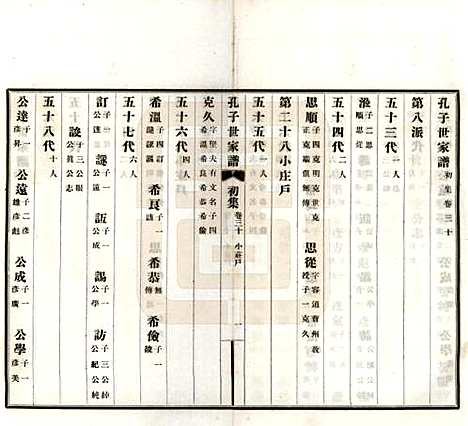 孔子世家譜 初集卷三十
第八派
五十三代 一人
浚 子二思順思從
五十四代 二人
思順 子四克明克世克正克瑜無傳 思從 字容道曹州教授子一克久
第二十八小庄戶
五十五代 一人
孔子世家譜 初集 卷三十 小莊戶 一
克久 字望夫有文名子四希溫希良希恭希儉
五十六代 四人
希溫 子四訂諼詬謁 希良 子一訪 希恭 無傳 希儉 子一
五十七代 六人
訂 子一公達 諼 子一公遠 詬 子一公成 謁 子一公學 訪 子三公綽公紀公純
公眞公志
五十八代 十人
公達 子一彥昇 公遠 子二彥雄彥彪 公成 子一彥廣 公學 子一彥美